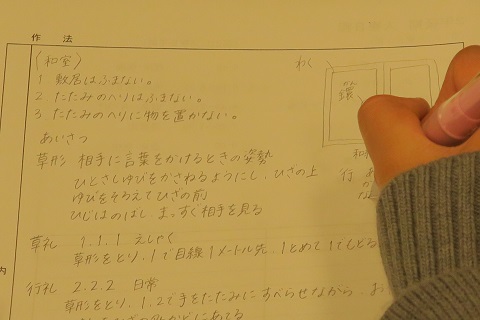 作法
(和室)
1 敷居はふまない。
2. たたみのヘリはふまない。
3. たたみのヘリに物を置かない。
あいさつ
草形 相手に言葉をかけるときの姿勢
ひとさしゆびをかさねるようにし、ひざの上
ゆびをそろえてひざの前
ひじはのばし、まっすぐ相手を見る
草礼 1.1.1 えしゃく
草形をとり、1で目線1メートル先、1とめて1でもどる
行礼 2.2.2 日常
草形をとり、1.2で手をたたみにすべらせながら、お
わく
かん
環
和
行
内